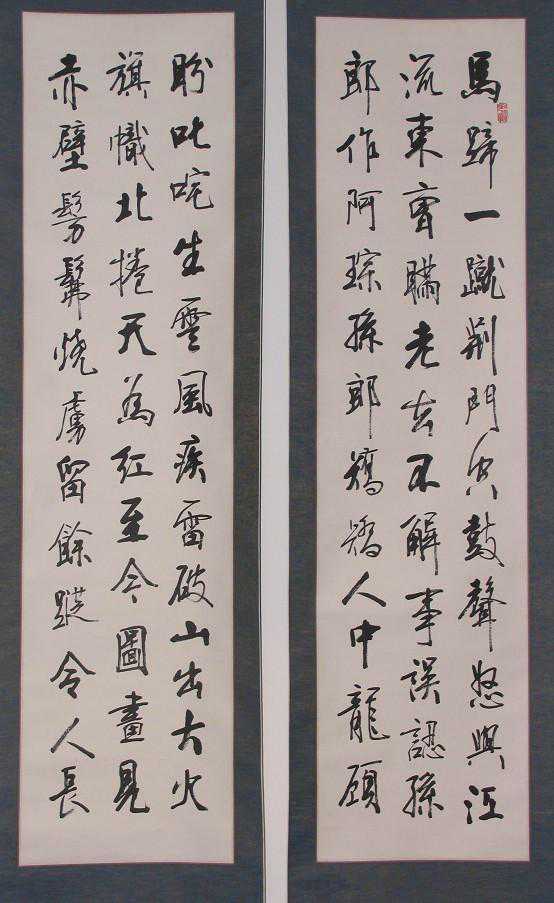 馬蹄一蹴荆門空鼓聲怒與江
流東曹瞞老去不解事誤認孫
郎作阿琮孫郎矯矯人中龍顧
盼叱咤生雲風疾雷破山出大火
旗幟北捲天為紅至今圖畫見
赤壁髣髴燒虜留餘蹤令人長